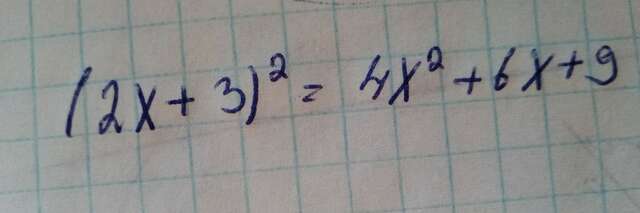 (2x + 3)² = 4x² + 6x + 9